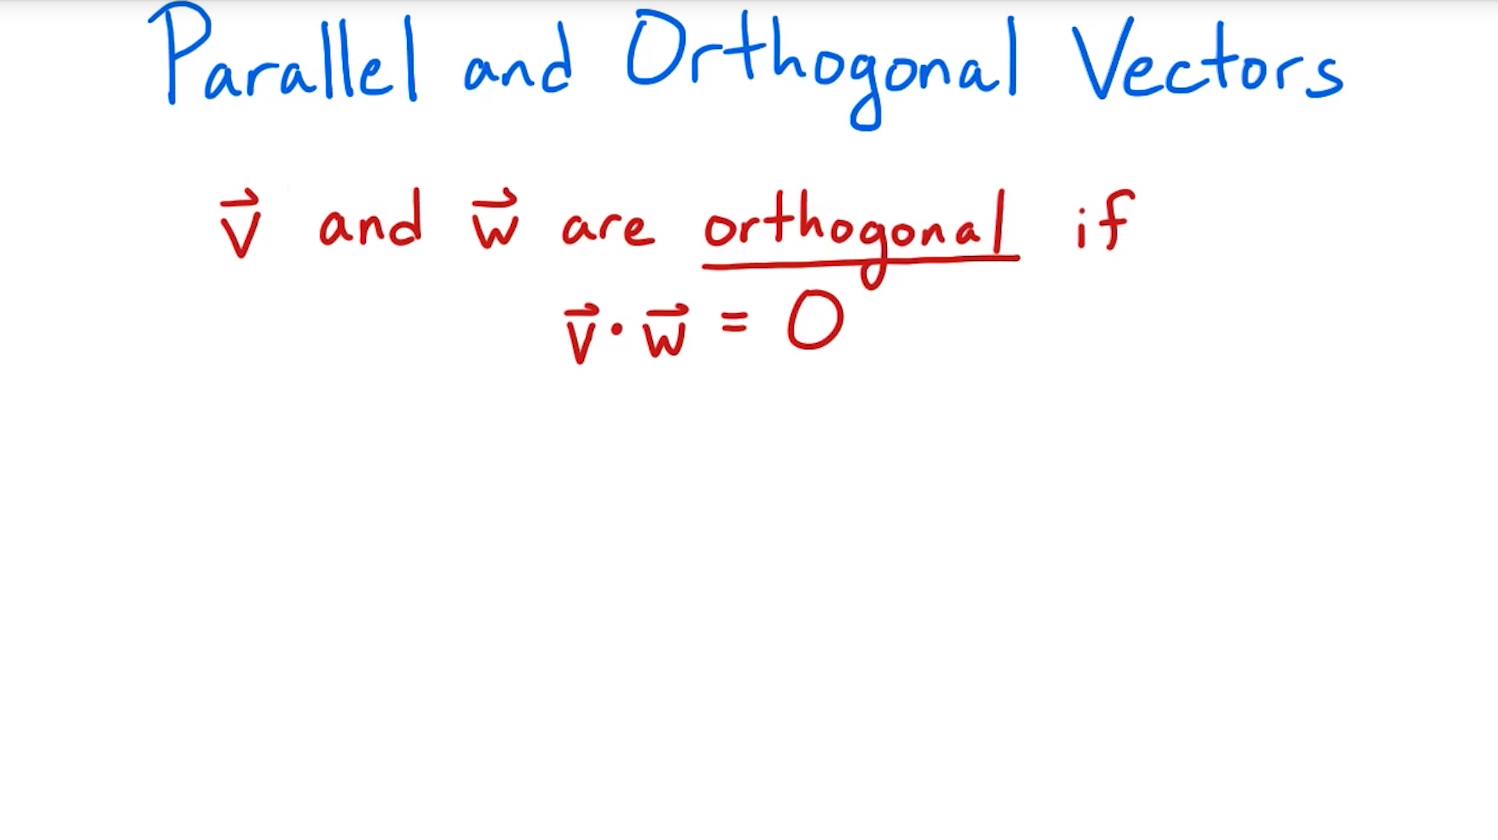 Parallel and Orthogonal Vectors
v⃗ and w⃗ are orthogonal if
v⃗ · w⃗ = 0